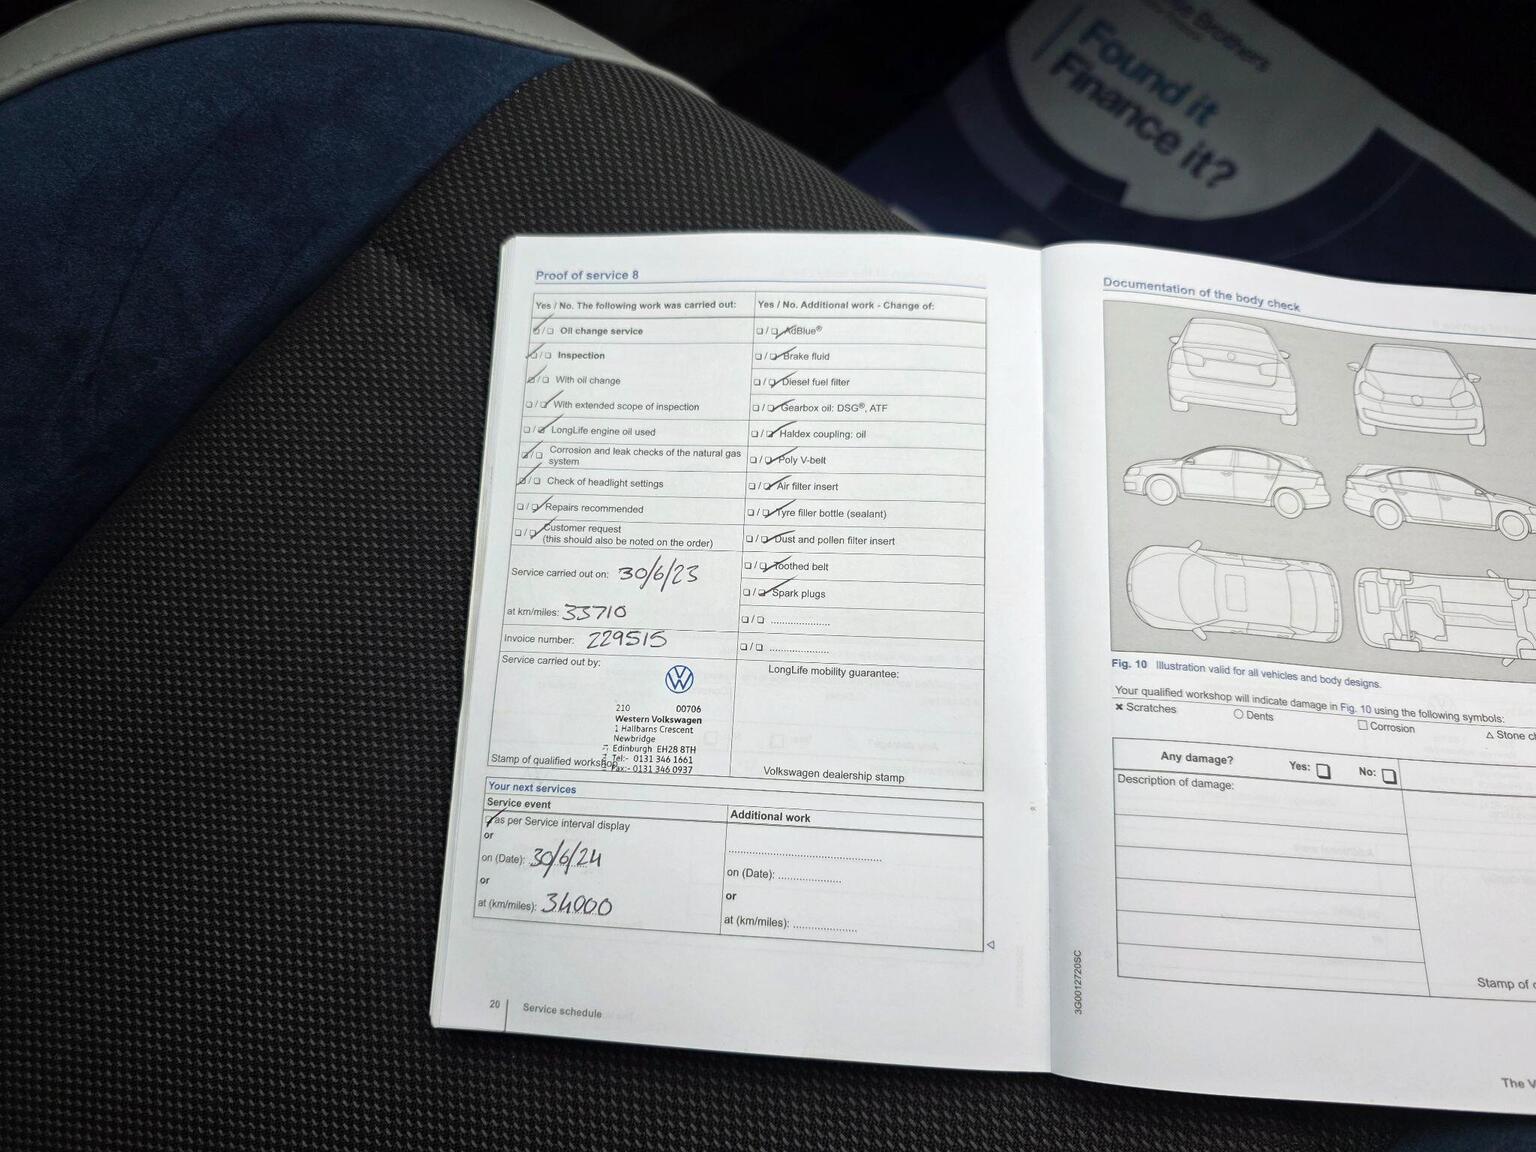 Brothers
Found it
Finance it?
Proof of service 8
Yes / No. The following work was carried out:
Oil change service
Inspection
With oil change
With extended scope of inspection
LongLife engine oil used
Corrosion and leak checks of the natural gas
system
Check of headlight settings
Repairs recommended
Customer request
(this should also be noted on the order)
Service carried out on: 30/6/23
at km/miles: 33710
Invoice number: 229515
Service carried out by:
210 00706
Western Volkswagen
1 Hallbarns Crescent
Newbridge
Edinburgh EH28 8TH
Tel:- 0131 346 1661
Fax:- 0131 346 0937
Stamp of qualified workshop
Yes / No. Additional work - Change of:
AdBlue®
Brake fluid
Diesel fuel filter
Gearbox oil: DSG®, ATF
Haldex coupling: oil
Poly V-belt
Air filter insert
Tyre filler bottle (sealant)
Dust and pollen filter insert
Toothed belt
Spark plugs
LongLife mobility guarantee:
Volkswagen dealership stamp
Your next services
Service event
as per Service interval display
or
on (Date): 30/6/24
or
at (km/miles): 34000
Additional work
on (Date):
or
at (km/miles):
20 Service schedule
Documentation of the body check
Fig. 10 Illustration valid for all vehicles and body designs.
Your qualified workshop will indicate damage in Fig. 10 using the following symbols:
Scratches
Dents
Corrosion
Stone
Any damage? Yes: No:
Description of damage:
Stamp of
3G0012720SC
The